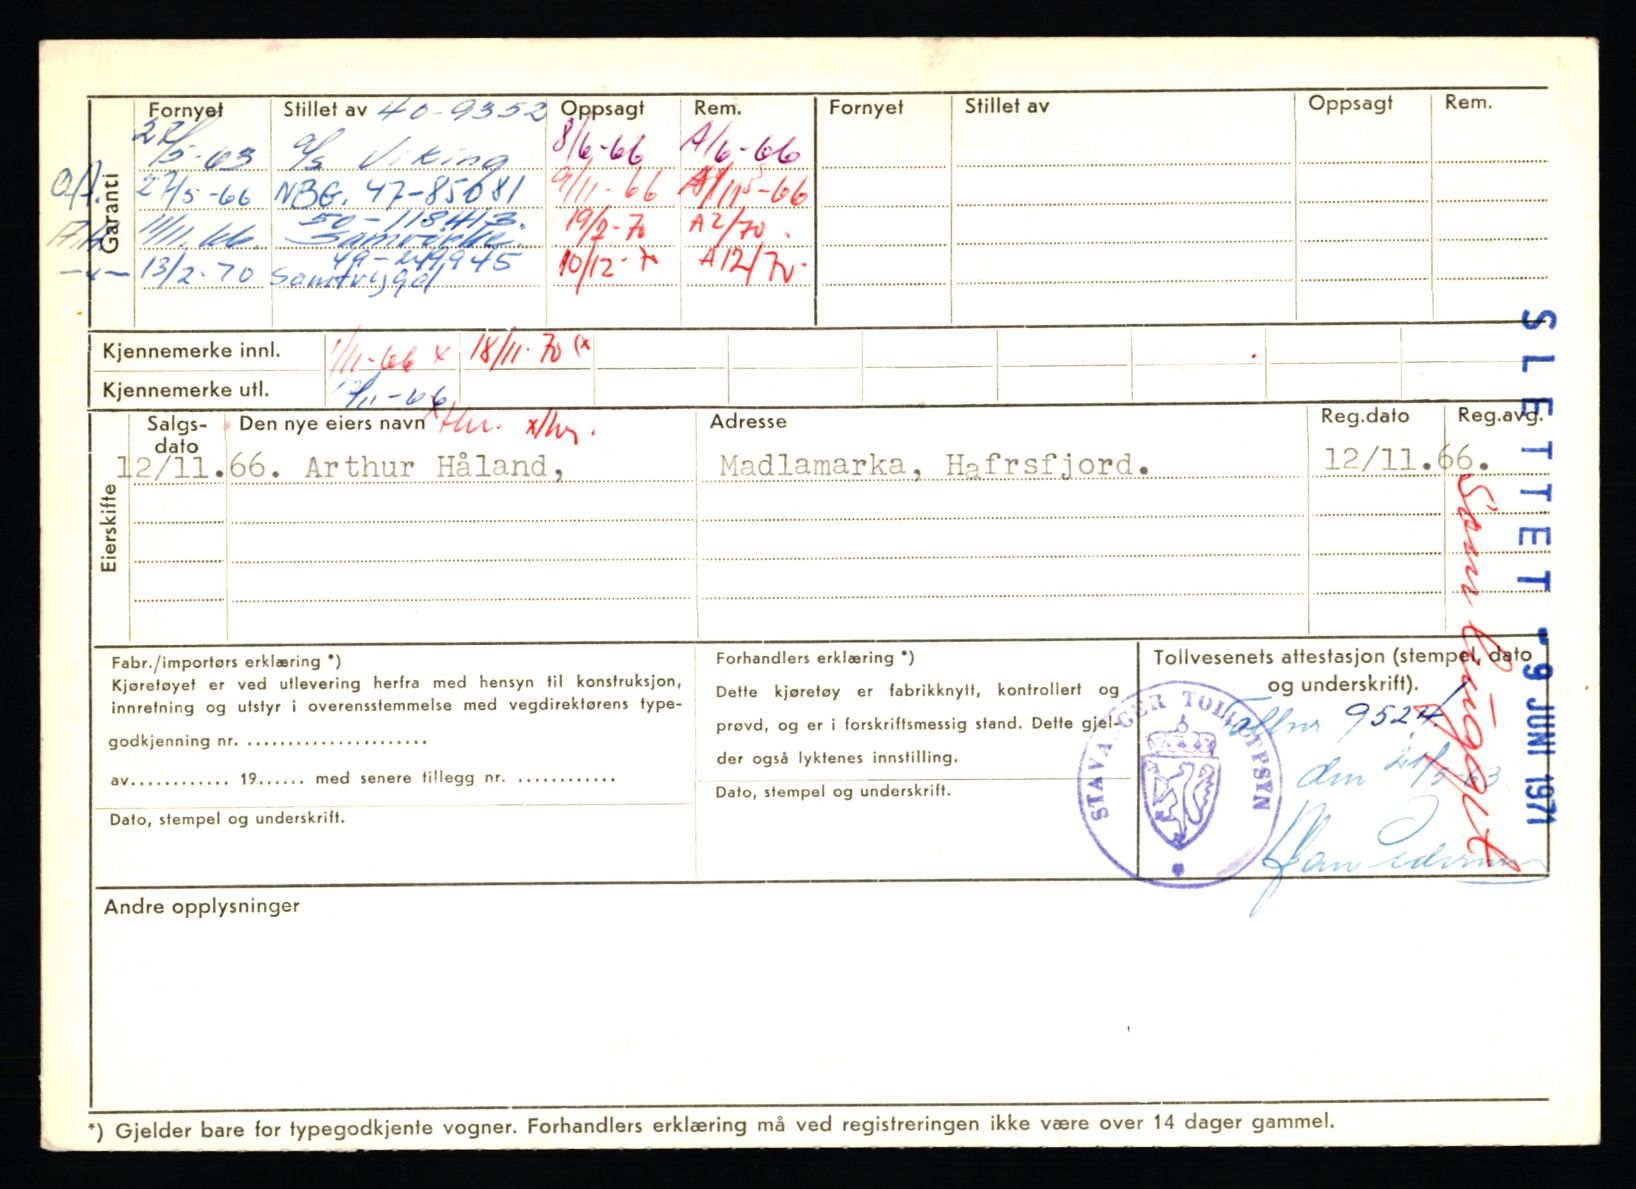 Garanti
Fornyet Stillet av 40-9352 Oppsagt Rem. Fornyet Stillet av Oppsagt Rem.
22/5-63 a/s Viking 8/6-66 A/6-66
27/5-66 NBG. 47-85081 9/11-66 A/11-66
11/11.66. 50-118413. Samvirke. 19/2-70 A2/70.
13/2-70 49- Samtrygd 10/12-70 A12/70.
Kjennemerke innl. 1/11-66 x 18/11-70 (x
Kjennemerke utl. /11-66
Eierskifte
Salgs-dato Den nye eiers navn Adresse Reg.dato Reg.avg.
12/11.66. Arthur Håland, Madlamarka, Hafrsfjord. 12/11.66.
Fabr./importørs erklæring *)
Kjøretøyet er ved utlevering herfra med hensyn til konstruksjon,
innretning og utstyr i overensstemmelse med vegdirektørens type-
godkjenning nr. ......................
av............ 19...... med senere tillegg nr. ............
Dato, stempel og underskrift.
Forhandlers erklæring *)
Dette kjøretøy er fabrikknytt, kontrollert og
prøvd, og er i forskriftsmessig stand. Dette gjel-
der også lyktenes innstilling.
Dato, stempel og underskrift.
Tollvesenets attestasjon (stempel, dato
og underskrift).
Tollnr 9524
den 21/5-63
STAVANGER TOLLOPPSYN
SLETTET - 9 JUNI 1971
Andre opplysninger
*) Gjelder bare for typegodkjente vogner. Forhandlers erklæring må ved registreringen ikke være over 14 dager gammel.